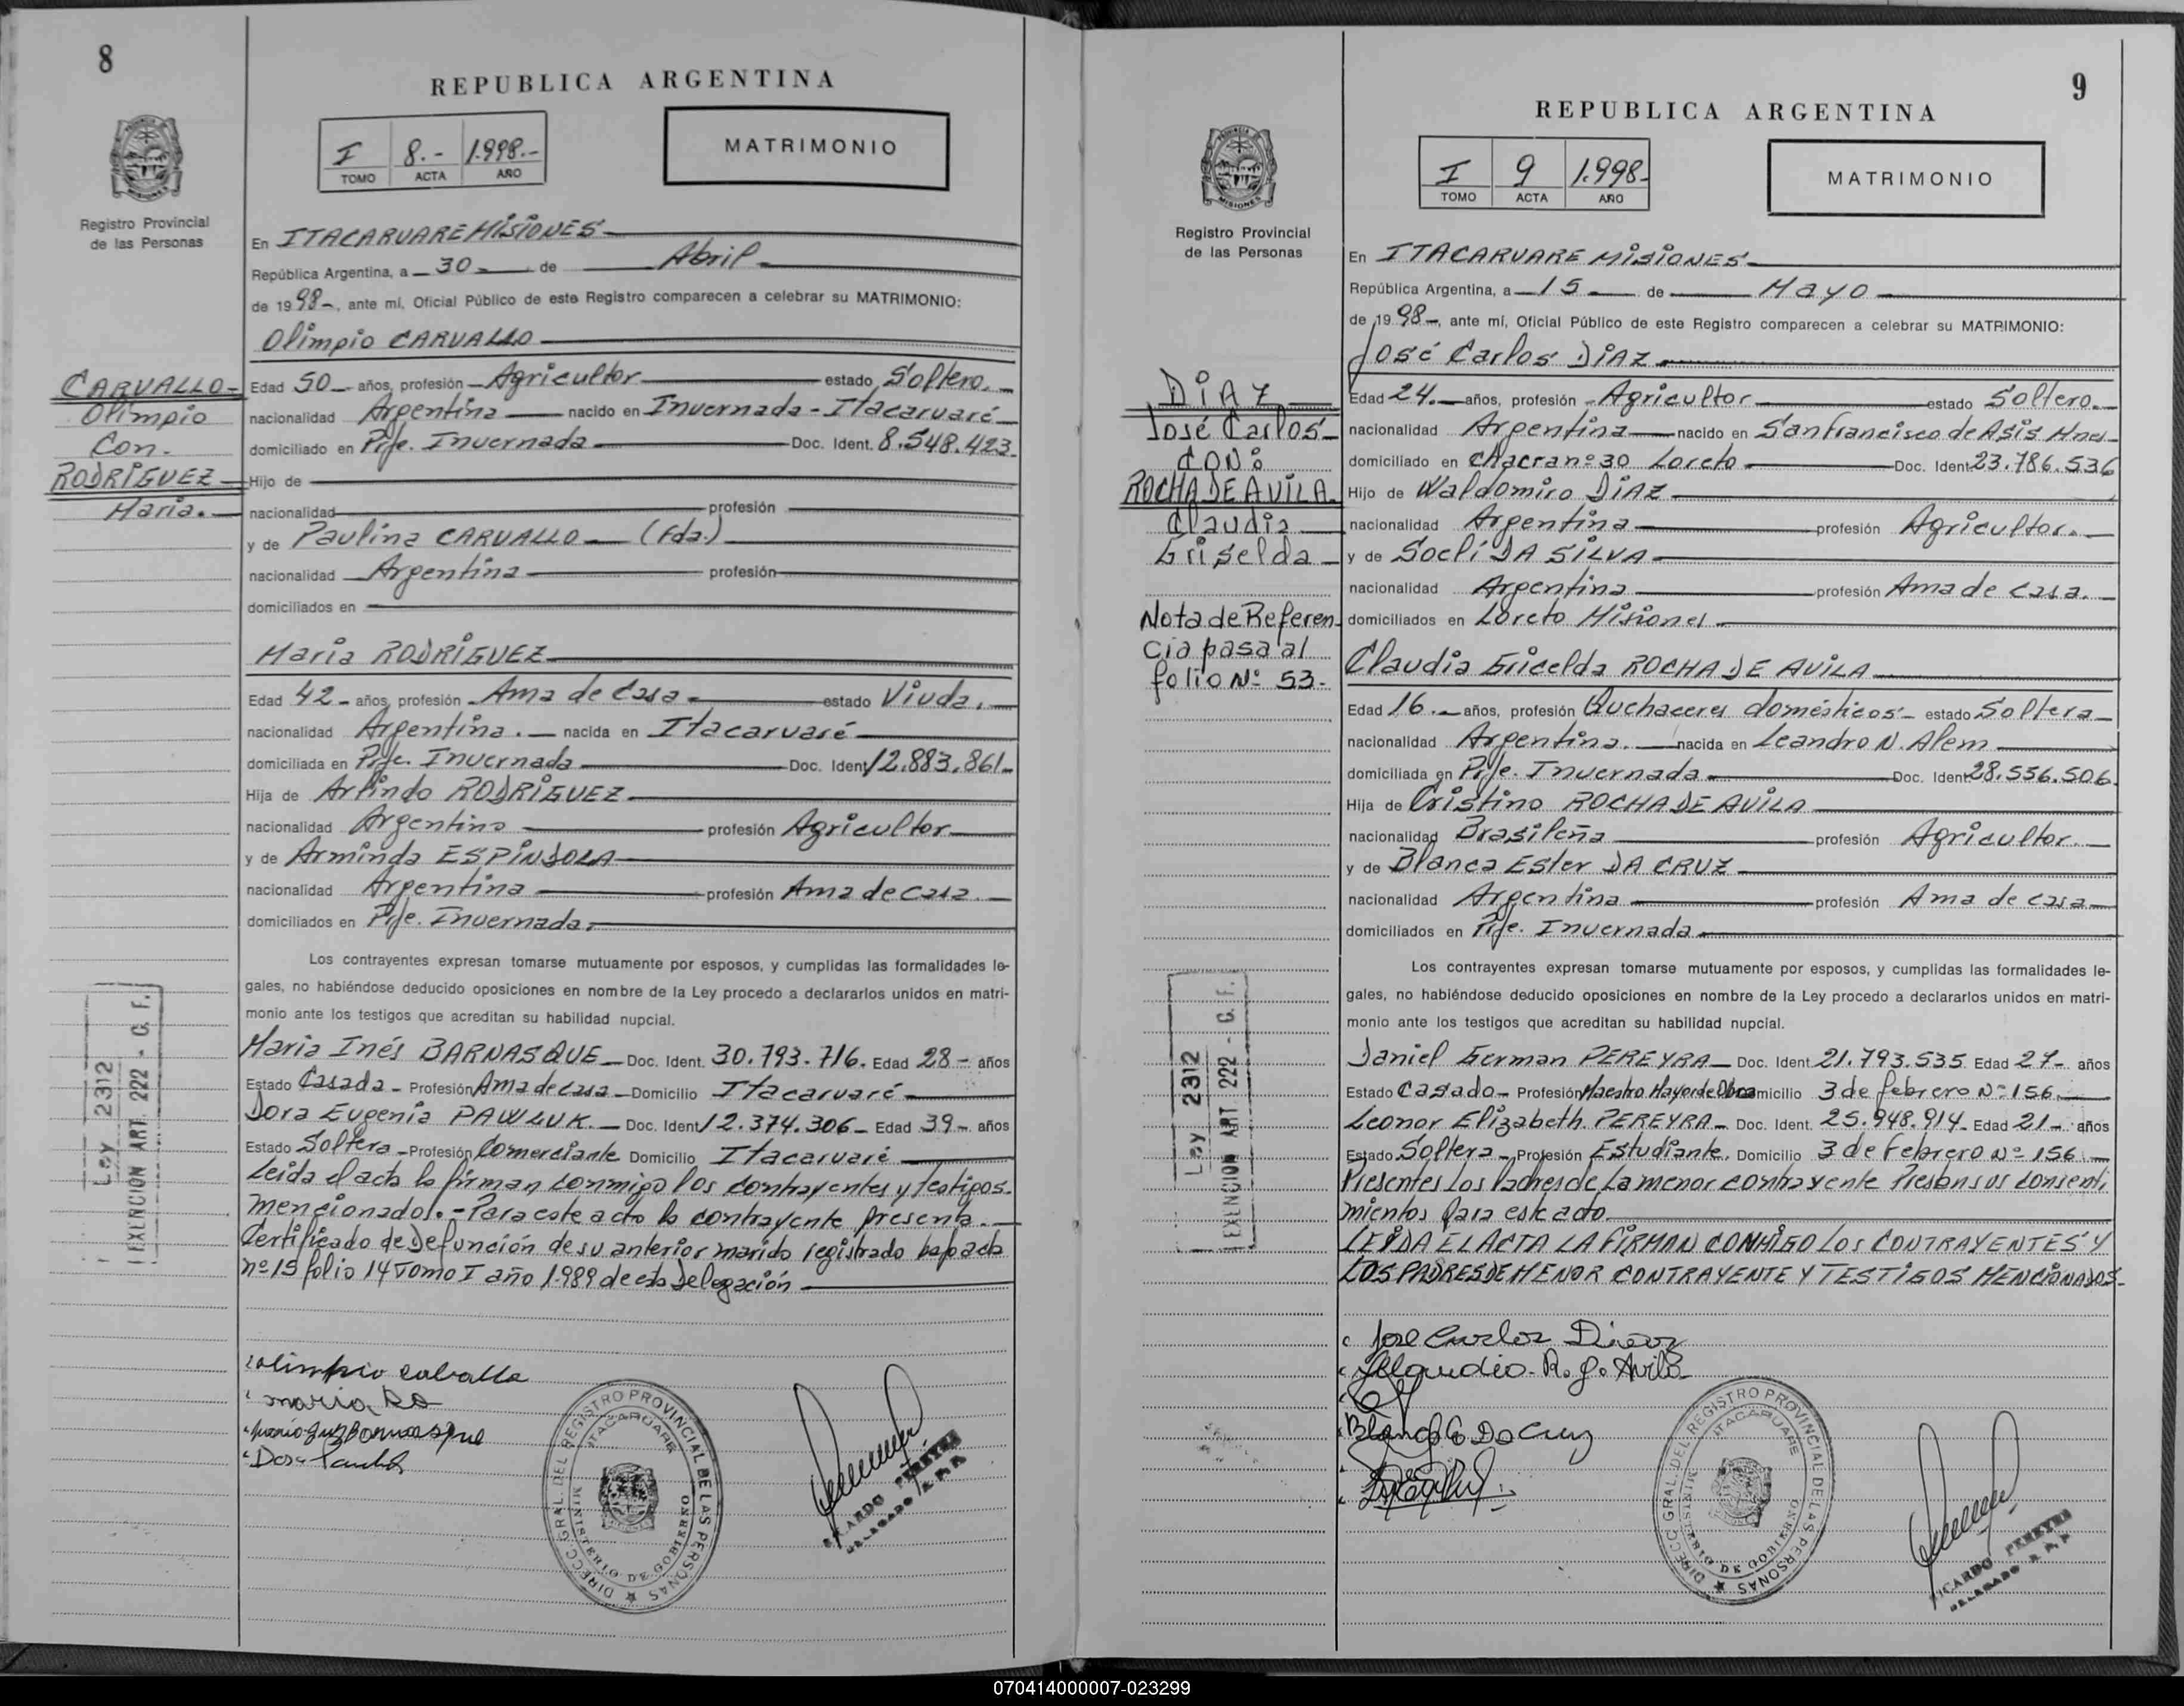 8
REPUBLICA ARGENTINA
I 8.- 1.998.-
TOMO ACTA AÑO
MATRIMONIO
Registro Provincial
de las Personas
En ITACARUARE MISIONES
República Argentina, a 30 de Abril
de 1998-, ante mí, Oficial Público de este Registro comparecen a celebrar su MATRIMONIO:
Olimpio CARVALLO
CARVALLO-
Olimpio
Con.
RODRIGUEZ
Maria.
Edad 50 años, profesión Agricultor estado Soltero.
nacionalidad Argentina nacido en Invernada - Itacaruaré
domiciliado en Pje. Invernada Doc. Ident. 8.548.423.
Hijo de
nacionalidad profesión
y de Paulina CARVALLO (Fda.)
nacionalidad Argentina profesión
domiciliados en
Maria RODRIGUEZ
Edad 42- años, profesión Ama de Casa estado Viuda.
nacionalidad Argentina. nacida en Itacaruaré
domiciliada en Pje. Invernada Doc. Ident 12.883.861
Hija de Arlindo RODRIGUEZ
nacionalidad Argentino profesión Agricultor
y de Arminda ESPINDOLA
nacionalidad Argentina profesión Ama de casa.
domiciliados en Pje. Invernada.
Los contrayentes expresan tomarse mutuamente por esposos, y cumplidas las formalidades le-
gales, no habiéndose deducido oposiciones en nombre de la Ley procedo a declararlos unidos en matri-
monio ante los testigos que acreditan su habilidad nupcial.
Maria Inés BARNASQUE Doc. Ident. 30.793.716. Edad 28- años
Estado Casada - Profesión Ama de casa Domicilio Itacaruaré
Dora Eugenia PAWLUK. Doc. Ident 12.374.306 Edad 39- años
Estado Soltera - Profesión Comerciante Domicilio Itacaruaré
Leida el acta la firman conmigo los contrayentes y testigos
mencionados.- Para este acto la contrayente presenta
Certificado de Defunción de su anterior marido registrado bajo acta
nº 15 folio 14 Tomo I año 1.989 de esta Delegación
Ley 2312
EXENCION ART. 222 - C. F.
olimpio caballo
maria Ro
DIRECC. GRAL. DEL REGISTRO PROVINCIAL DE LAS PERSONAS
ITACARUARE
MINISTERIO DE GOBIERNO
RICARDO PEREYRA
DELEGADO
9
REPUBLICA ARGENTINA
I 9 1.998-
TOMO ACTA AÑO
MATRIMONIO
PROVINCIA DE MISIONES
Registro Provincial
de las Personas
En ITACARUARE MISIONES
República Argentina, a 15 de Mayo
de 1998-, ante mí, Oficial Público de este Registro comparecen a celebrar su MATRIMONIO:
José Carlos DIAZ
DIAZ
José Carlos
CON:
ROCHA DE AVILA
Claudia
Griselda
Nota de Referen
cia pasa al
folio Nº 53-
Edad 24. años, profesión Agricultor estado Soltero.
nacionalidad Argentina nacido en San Francisco de Asis Mnes
domiciliado en Chacra nº 30 Loreto Doc. Ident 23.786.536
Hijo de Waldomiro DIAZ
nacionalidad Argentina profesión Agricultor.
y de Soeli DA SILVA
nacionalidad Argentina profesión Ama de casa.
domiciliados en Loreto Misiones
Claudia Gricelda ROCHA DE AVILA
Edad 16. años, profesión Quehaceres domésticos estado Soltera
nacionalidad Argentina. nacida en Leandro N. Alem
domiciliada en Pje. Invernada Doc. Ident 28.536.506
Hija de Cristino ROCHA DE AVILA
nacionalidad Brasileña profesión Agricultor.
y de Blanca Ester DA CRUZ
nacionalidad Argentina profesión Ama de casa
domiciliados en Pje. Invernada
Los contrayentes expresan tomarse mutuamente por esposos, y cumplidas las formalidades le-
gales, no habiéndose deducido oposiciones en nombre de la Ley procedo a declararlos unidos en matri-
monio ante los testigos que acreditan su habilidad nupcial.
Daniel German PEREYRA Doc. Ident 21.793.535 Edad 27- años
Estado Casado - Profesión Maestro Mayor de Obra Domicilio 3 de febrero Nº 156
Leonor Elizabeth PEREYRA Doc. Ident. 25.948.914 Edad 21- años
Estado Soltera - Profesión Estudiante. Domicilio 3 de Febrero Nº 156
Presentes los Padres de la menor contrayente Prestan sus consenti
mientos para este acto
LEIDA EL ACTA LA FIRMAN CONMIGO LOS CONTRAYENTES Y
LOS PADRES DE MENOR CONTRAYENTE Y TESTIGOS MENCIONADOS-
Ley 2312
EXENCION ART 222 - C. F.
Jose Carlos Diaz
Claudia R. g. Avila
Blanca E Da Cruz
DIRECC GRAL. DEL REGISTRO PROVINCIAL DE LAS PERSONAS
ITACARUARE
MINISTERIO DE GOBIERNO
RICARDO PEREYRA
DELEGADO
070414000007-023299